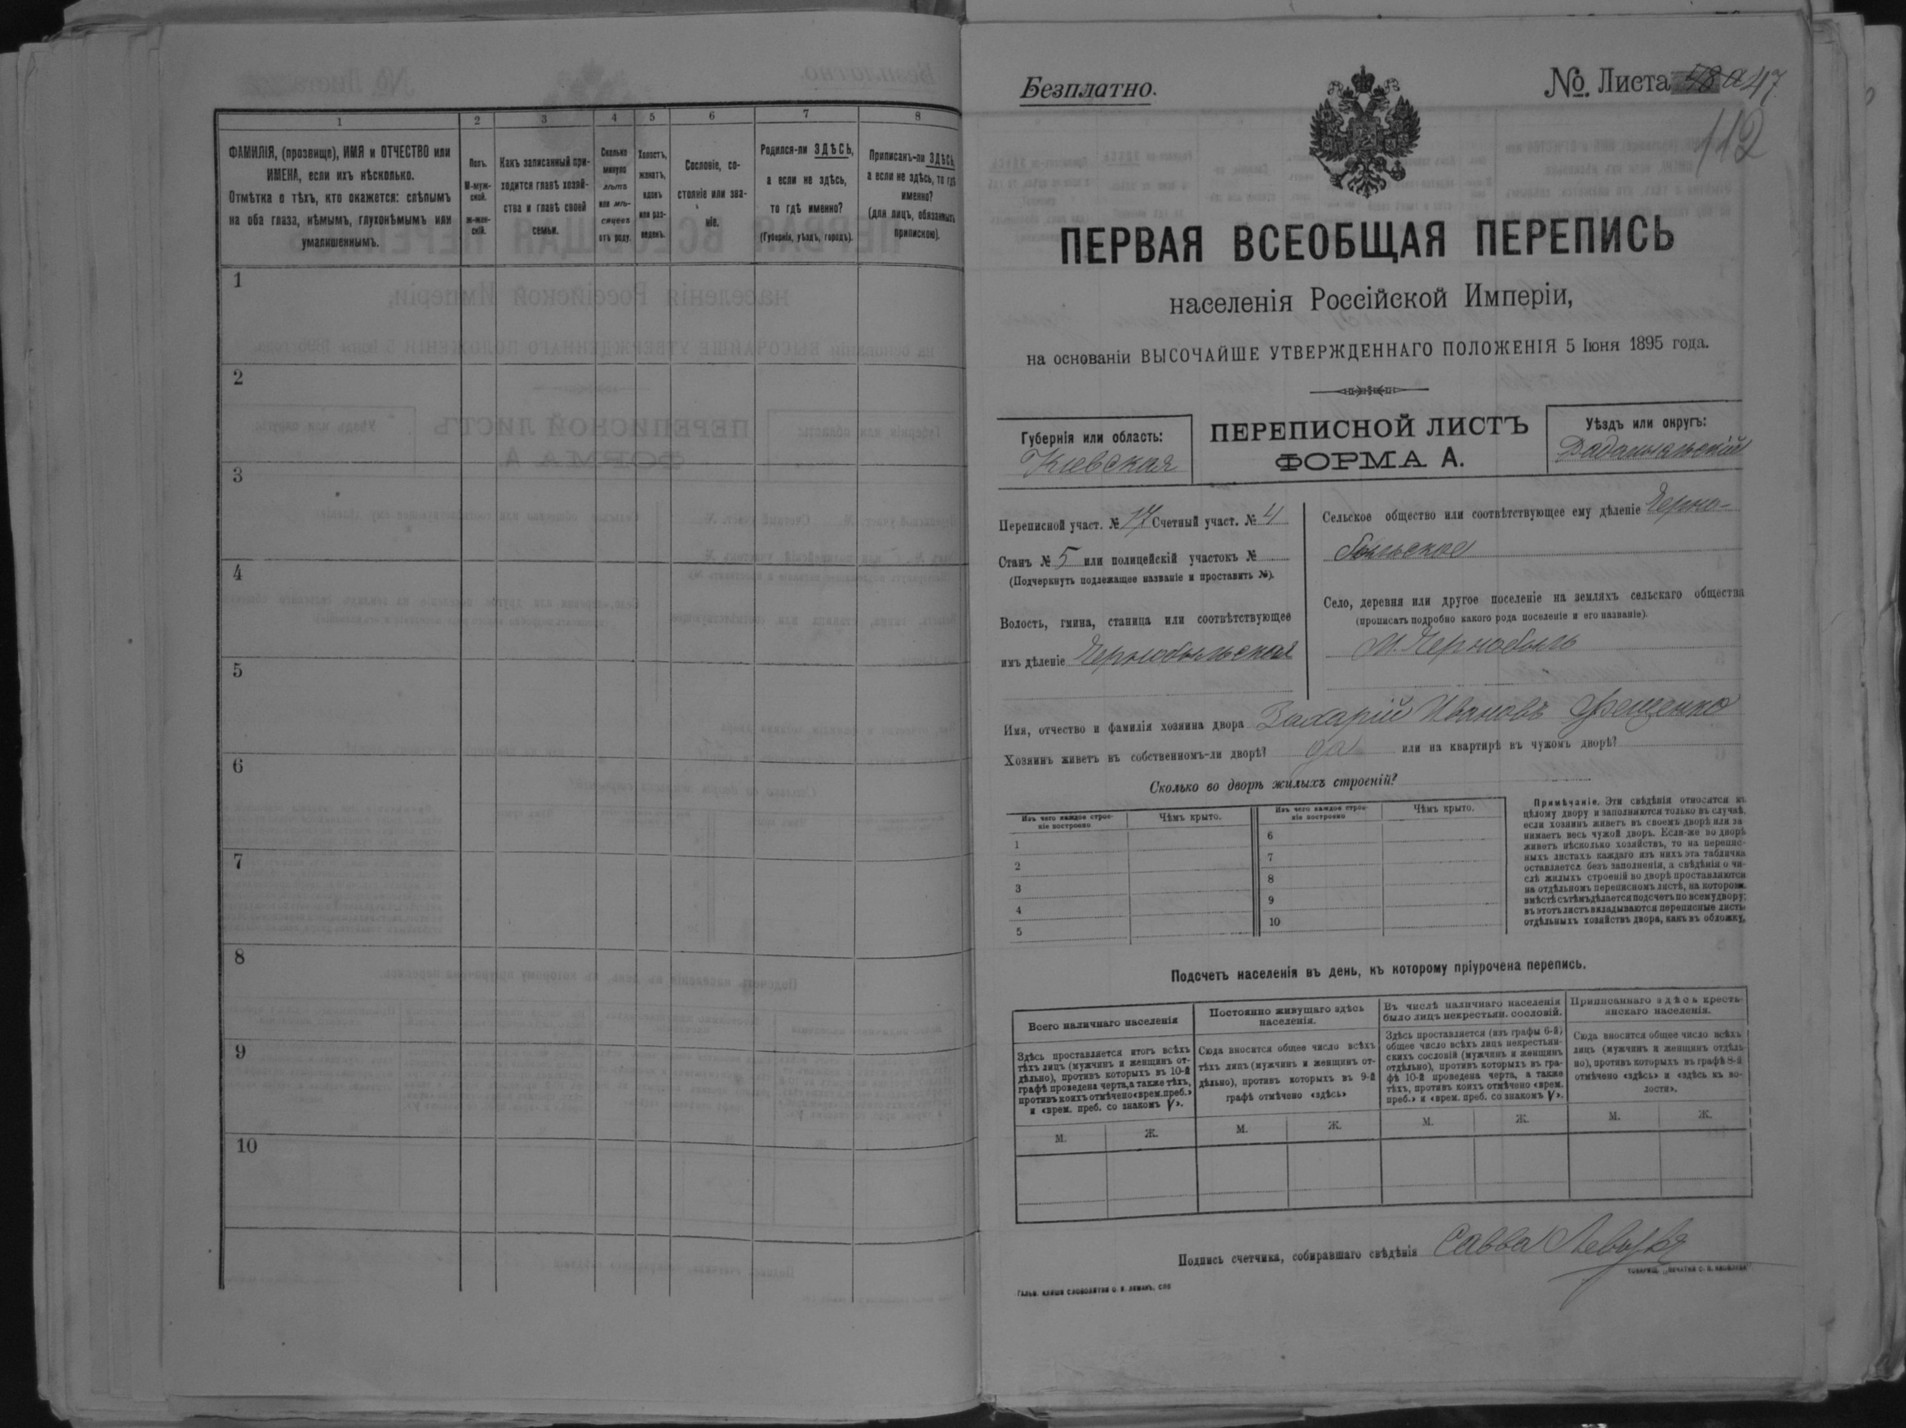 1 2 3 4 5 6 7 8
ФАМИЛІЯ, (прозвище), ИМЯ и ОТЧЕСТВО или
ИМЕНА, если ихъ нѣсколько.
Отмѣтка о тѣхъ, кто окажется: слѣпымъ
на оба глаза, нѣмымъ, глухонѣмымъ или
умалишеннымъ.
Полъ.
М-муж-
ской.
Ж-жен-
скій.
Какъ записанный при-
ходится главѣ хозяй-
ства и главѣ своей
семьи.
Сколько
минуло
лѣтъ
или мѣ-
сяцевъ
отъ роду.
Холостъ,
женатъ,
вдовъ
или раз-
веденъ.
Сословіе, со-
стояніе или зва-
ніе.
Родился-ли ЗДѢСЬ,
а если не здѣсь,
то гдѣ именно?
(Губернія, уѣздъ, городъ).
Приписанъ-ли ЗДѢСЬ,
а если не здѣсь, то гдѣ
именно?
(для лицъ, обязанныхъ
припискою).
1
2
3
4
5
6
7
8
9
10
Безплатно.
№ Листа 58 а 47
112
ПЕРВАЯ ВСЕОБЩАЯ ПЕРЕПИСЬ
населенія Россійской Имперіи,
на основаніи ВЫСОЧАЙШЕ УТВЕРЖДЕННАГО ПОЛОЖЕНІЯ 5 Іюня 1895 года.
Губернія или область:
Кіевская
ПЕРЕПИСНОЙ ЛИСТЪ
ФОРМА А.
Уѣздъ или округъ:
Радомысльскій
Переписной участ. № 17 Счетный участ. № 4
Станъ № 5 или полицейскій участокъ №
(Подчеркнуть подлежащее названіе и проставить №).
Волость, гмина, станица или соотвѣтствующее
имъ дѣленіе Чернобыльская
Сельское общество или соотвѣтствующее ему дѣленіе Черно-
быльское
Село, деревня или другое поселеніе на земляхъ сельскаго общества
(прописать подробно какого рода поселеніе и его названіе).
М. Чернобыль
Имя, отчество и фамилія хозяина двора Захарій Ивановъ Фещенко
Хозяинъ живетъ въ собственномъ-ли дворѣ? да или на квартирѣ въ чужомъ дворѣ?
Сколько во дворѣ жилыхъ строеній?
Изъ чего каждое строе-
ніе построено
Чѣмъ крыто.
Изъ чего каждое строе-
ніе построено
Чѣмъ крыто.
1
2
3
4
5
6
7
8
9
10
Примѣчаніе. Эти свѣдѣнія относятся къ
цѣлому двору и заполняются только въ случаѣ,
если хозяинъ живетъ въ своемъ дворѣ или за-
нимаетъ весь чужой дворъ. Если-же во дворѣ
живетъ нѣсколько хозяйствъ, то на перепис-
ныхъ листахъ каждаго изъ нихъ эта табличка
оставляется безъ заполненія, а свѣдѣнія о чи-
слѣ жилыхъ строеній во дворѣ проставляются
на отдѣльномъ переписномъ листѣ, на которомъ
вмѣстѣ съ тѣмъ дѣлается подсчетъ по всему двору;
въ этотъ листъ вкладываются переписные листы
отдѣльныхъ хозяйствъ двора, какъ въ обложку.
Подсчетъ населенія въ день, къ которому пріурочена перепись.
Всего наличнаго населенія
Здѣсь проставляется итогъ всѣхъ
тѣхъ лицъ (мужчинъ и женщинъ от-
дѣльно), противъ которыхъ въ 10-й
графѣ проведена черта, а также тѣхъ,
противъ коихъ отмѣчено «врем. преб.»
и «врем. преб. со знакомъ V».
Постоянно живущаго здѣсь
населенія.
Сюда вносится общее число всѣхъ
тѣхъ лицъ (мужчинъ и женщинъ от-
дѣльно), противъ которыхъ въ 9-й
графѣ отмѣчено «здѣсь»
Въ числѣ наличнаго населенія
было лицъ некрестьян. сословій.
Здѣсь проставляется (изъ графы 6-й)
общее число всѣхъ лицъ некрестьян-
скихъ сословій (мужчинъ и женщинъ
отдѣльно), противъ которыхъ въ гра-
фѣ 10-й проведена черта, а также
тѣхъ, противъ коихъ отмѣчено «врем.
преб.» и «врем. преб. со знакомъ V».
Приписаннаго здѣсь кресть-
янскаго населенія.
Сюда вносится общее число всѣхъ
лицъ (мужчинъ и женщинъ отдѣль-
но), противъ которыхъ въ графѣ 8-й
отмѣчено «здѣсь» и «здѣсь къ во-
лости».
М. Ж. М. Ж. М. Ж. М. Ж.
Подпись счетчика, собиравшаго свѣдѣнія Савва
ГАЛЬВ. КЛИШЕ СЛОВОЛИТНИ О. И. ЛЕМАНЪ, СПБ
ТОВАРИЩ. „ПЕЧАТНЯ С. П. ЯКОВЛЕВА“